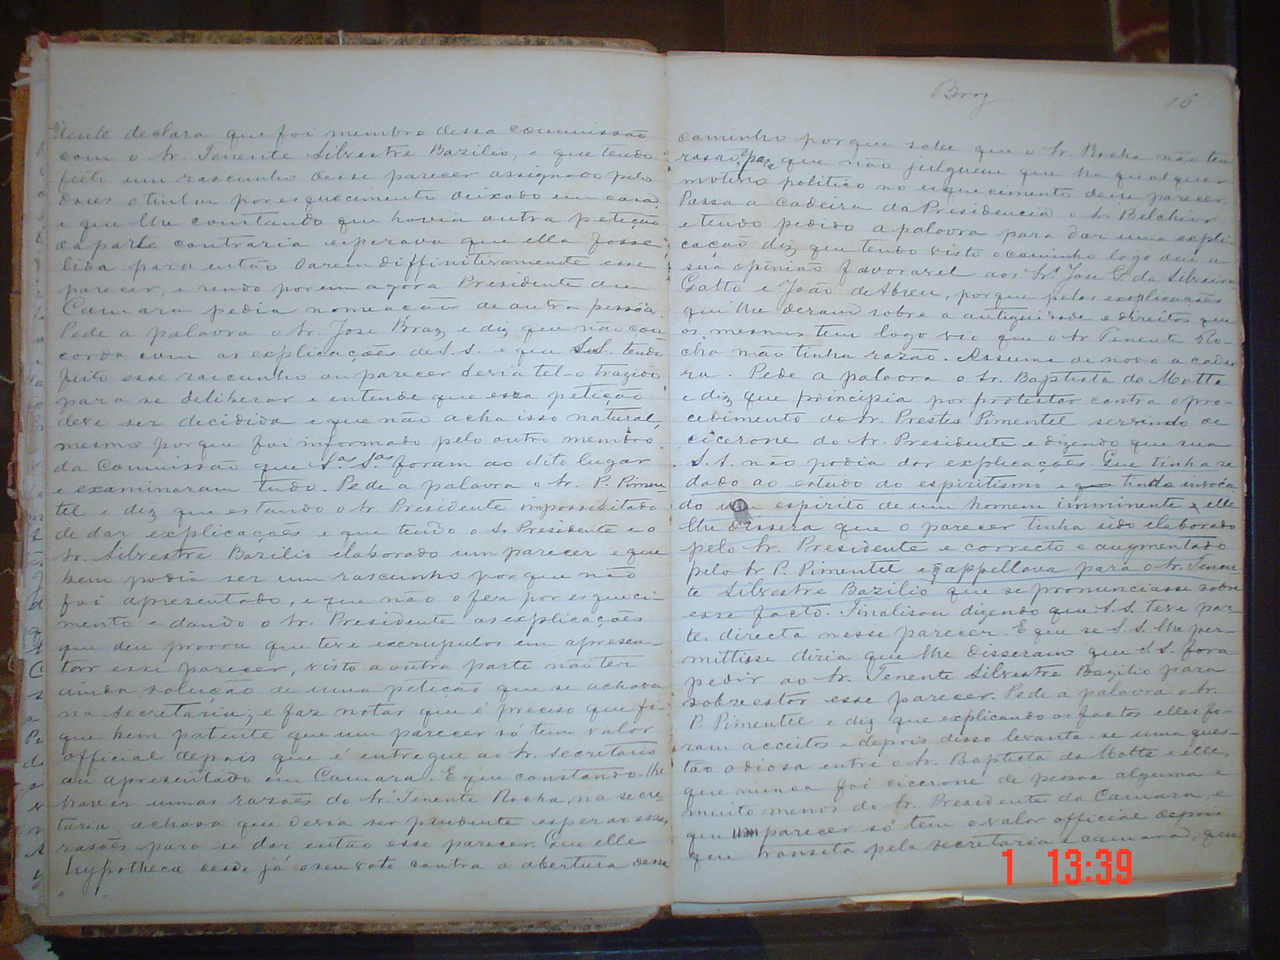 dente declara que foi membro dessa commissão
com o Sr. Tenente Silvestre Bazilio, e que tendo
feito um rascunho desse parecer assignado pelo
dous o tinha por esquecimento deixado em casa
e que lhe constando que havia outra petição
da parte contraria esperava que ella fosse
lida para então darem diffinitivamente esse
parecer, e sendo porem agora Presidente da
Camara pedia nomeação de outra pessôa.
Pede a palavra o Sr. Jose Braz e diz que não con
corda com as explicações de S.S. e que S.S. tendo
feito esse rascunho ou parecer devia tel-o trazido
para se deliberar e entende que essa petição
deve ser decidida e que não acha isso natural,
mesmo porque foi informado pelo outro membro
da Commissão que Sas. Sas. foram ao dito lugar
e examinaram tudo. Pede a palavra o Sr. P. Pimen-
tel e diz que estando o Sr. Presidente impossibitado
de dar explicações e que tendo o Sr Presidente e o
Sr. Silvestre Bazilio elaborado um parecer e que
bem podia ser um rascunho porque não
foi apresentado, e que não o fez por esqueci-
mento e dando o Sr. Presidente as explicações
que deu provou que teve escrupulos em apresen-
tar esse parecer, visto a outra parte não ter
ainda solução de uma petição que se achava
na Secretaria; e faz notar que é preciso que fi-
que bem patente que um parecer só tem valor
official depois que é entregue ao Sr. Secretario
ou apresentado em Camara. E que constando-lhe
haver umas razões do Sr. Tenente Rocha, na secre-
taria, achava que devia ser prudente esperar essas
rasões para se dar então esse parecer. Que elle
hypotheca desde já o seu voto contra a abertura desse
Braz
16
caminho porque sabe que o Sr. Rocha não tem
rasão, para que não julguem que ha qualquer
motivo politico no esquecimento desse parecer.
Passa a cadeira da Presidencia o Sr. Belchior
e tendo pedido a palavra para dar uma expli-
cação diz que tendo visto o caminho logo deu a
sua opinião favoravel aos Srs. Jose G. da Silveira
Gatto e João de Abreu, porque pelas explicações
que lhe deram sobre a antiguidade e direitos que
os mesmos tem logo vio que o Sr Tenente Ro-
cha não tinha razão. Assume de novo a cadei
ra. Pede a palavra o Sr. Baptista da Motta
e diz que principia por protestar contra o pro-
cedimento do Sr. Prestes Pimentel servindo de
cicerone do Sr. Presidente e dizendo que sua
S.S. não podia dar explicações. Que tinha se
dado ao estudo do espiritismo e que tendo invoca
do o espirito de um homem imminente e elle
lhe dissera que o parecer tinha sido elaborado
pelo Sr. Presidente e correcto e augmentado
pelo Sr P. Pimentel e appellava para o Sr. Tenen
te Silvestre Bazilio que se pronunciasse sobre
esse facto. Finalisou dizendo que S.S. teve par
te directa nesse parecer. E que se S.S. lhe per-
mittisse diria que lhe disseram que S.S. fora
pedir ao Sr. Tenente Silvestre Bazilio para
sobreestar esse parecer. Pede a palavra o Sr.
P. Pimentel e diz que explicando os factos elles fo-
ram acceitos e depois disso levanta-se uma ques-
tão odiosa entre o Sr. Baptista da Motta e elle,
que nunca foi cicerone de pessoa alguma e
muito menos do Sr. Presidente da Camara e
que um parecer só tem o valor official depois
que transita pela secretaria e camara, que
1 13:39